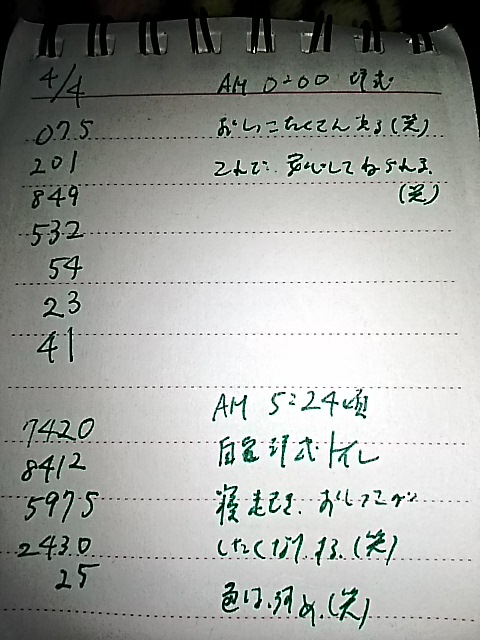 4/4
AM 0:00 現在
075 おしっこたくさん出る(笑)
201 これで、安心してねられる。
849 (笑)
532
54
23
41
AM 5:24頃
7420
8412 自宅 トイレ
5975 寝起き、おしっこが
2430 したくなります。(笑)
25
色は、弱め。(笑)